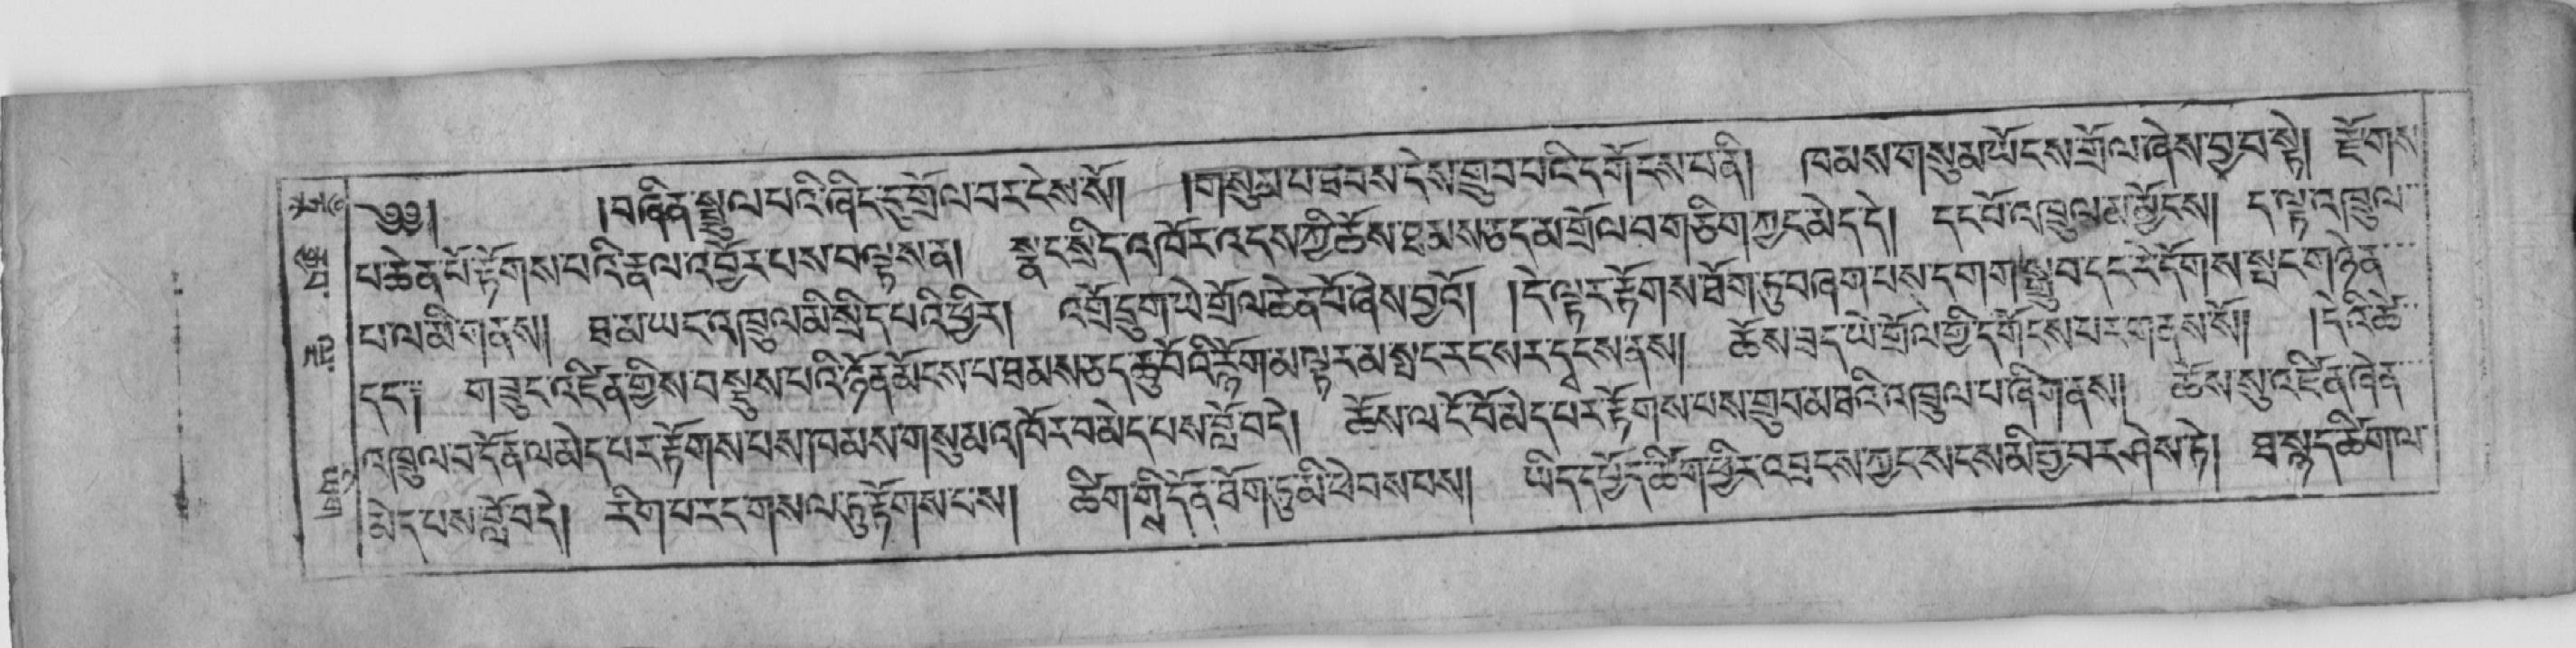 ༄༅། །བཞིན་སྤྲུལ་པའི་ཞིང་དུ་གྲོལ་བར་ངེས་སོ། །གསུམ་པ་ཐབས་དེས་གྲུབ་པའི་དགོངས་པ་ནི། ཁམས་གསུམ་ཡོངས་གྲོལ་ཞེས་བྱ་བ་སྟེ། རྫོགས་
པ་ཆེན་པོ་རྟོགས་པའི་རྣལ་འབྱོར་པས་བལྟས་ན། སྣང་སྲིད་འཁོར་འདས་ཀྱི་ཆོས་ཐམས་ཅད་མ་གྲོལ་བ་གཅིག་ཀྱང་མེད་དེ། དང་པོ་འཁྲུལ་མ་མྱོངས། ད་ལྟ་འཁྲུལ་
པ་ལ་མི་གནས། ཐ་མ་ཡང་འཁྲུལ་མི་སྲིད་པའི་ཕྱིར། འགྲོ་དྲུག་ཡེ་གྲོལ་ཆེན་པོ་ཞེས་བྱའོ། །དེ་ལྟར་རྟོགས་ཐོག་ཏུ་བཞག་པས་དགག་སྒྲུབ་དང་རེ་དོགས་སྤང་གཉེན་
དང་༔ གཟུང་འཛིན་གྱིས་བསྡུས་པའི་ཉོན་མོངས་པ་ཐམས་ཅད་ཆུ་བོའི་རྙོག་མ་ལྟར་མ་སྤང་རང་སར་དྭངས་ནས། ཆོས་ཟད་ཡེ་གྲོལ་གྱི་དགོངས་པར་གནས་སོ། །དེའི་ཚེ་
འཁྲུལ་བ་དོན་ལ་མེད་པར་རྟོགས་པས་ཁམས་གསུམ་འཁོར་བ་མེད་པས་བློ་བདེ། ཆོས་ལ་ངོ་བོ་མེད་པར་རྟོགས་པས་གྲུབ་མཐའི་འཁྲུལ་པ་ཞིག་ནས། ཆོས་སུ་འཛིན་ཞེན་
མེད་པས་བློ་བདེ། རིག་པ་རང་གསལ་དུ་རྟོགས་པས། ཚིག་གི་དོན་ཐོག་ཏུ་མི་ཕེབས་པས། ཡིད་དཔྱོད་ཚིག་ཕྱིར་འབྲངས་ཀྱང་སངས་མི་རྒྱ་བར་ཤེས་ཏེ། ཐ་སྙད་ཚིག་ལ་